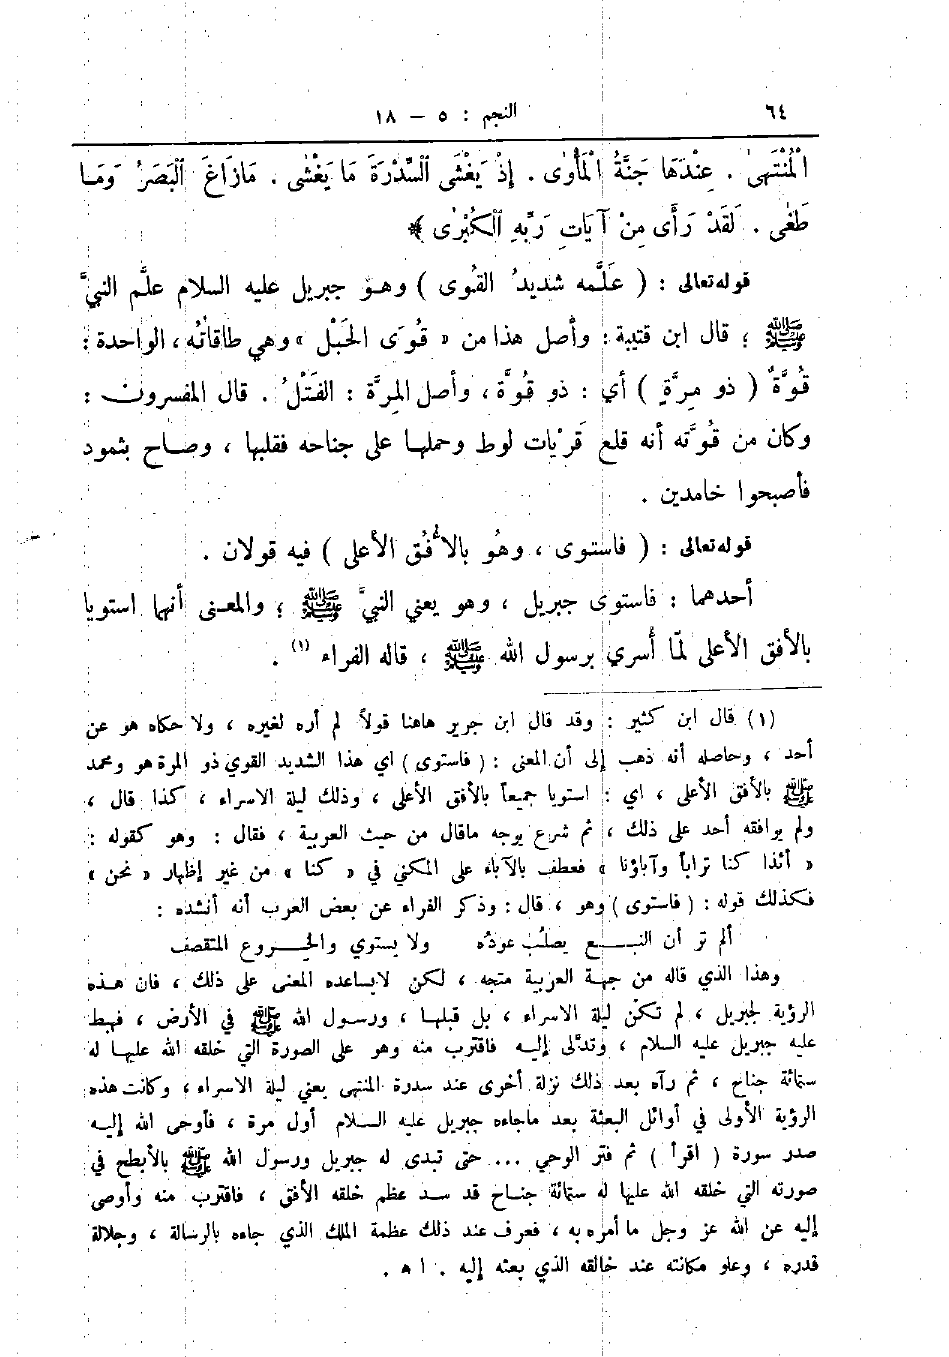 ٦٤ النجم : ٥ – ١٨
الْمُنْتَهىٰ . عِنْدَهَا جَنَّةُ الْمَأْوىٰ . إِذْ يَغْشَى السِّدْرَةَ مَا يَغْشٰى . مَازَاغَ الْبَصَرُ وَمَا
طَغٰى . لَقَدْ رَأَى مِنْ آيَاتِ رَبِّهِ الْكُبْرٰى ﴾
قوله تعالى : ( عَلَّمه شديدُ القُوى ) وهـو جبريل عليه السلام علَّم النبيَّ
ﷺ ؛ قال ابن قتيبة : وأصل هذا من « قُوَى الحَبْل » وهي طاقاتُه ، الواحدة :
قُوَّةٌ ( ذو مِرَّةٍ ) أي : ذو قُوَّة ، وأصل المِرَّة : الفَتْلُ . قال المفسرون :
وكان من قُوَّته أنه قلع قَرْيات لوط وحملها على جناحه فقلبها ، وصاح بثمود
فأصبحوا خامدين .
قوله تعالى : ( فاستوى ، وهُو بالأُفُق الأعلى ) فيه قولان .
أحدهما : فاستوى جبريل ، وهو يعني النبيَّ ﷺ ؛ والمعنى أنهما استويا
بالأفق الأعلى لمّا أُسري برسول الله ﷺ ، قاله الفراء (١) .
(١) قال ابن كثير : وقد قال ابن جرير هاهنا قولاً لم أره لغيره ، ولا حكاه هو عن
أحد ، وحاصله أنه ذهب إلى أن المعنى : ( فاستوى ) اي هذا الشديد القوي ذو المرة هو ومحمد
ﷺ بالأفق الأعلى ، اي : استويا جميعاً بالأفق الأعلى ، وذلك ليلة الاسراء ، كذا قال ،
ولم يوافقه أحد على ذلك ، ثم شرع يوجه ماقال من حيث العربية ، فقال : وهو كقوله :
« أئذا كنا تراباً وآباؤنا » فعطف بالآباء على المكني في « كنا » من غير إظهار « نحن »
فكذلك قوله : ( فاستوى ) وهو ، قال : وذكر الفراء عن بعض العرب أنه أنشده :
ألم تر أن النبـــع يصلُب عودُه ولا يستوي والخـــروع المتقصف
وهذا الذي قاله من جهة العربية متجه ، لكن لايساعده المعنى على ذلك ، فان هـذه
الرؤية لجبريل ، لم تكن ليلة الاسراء ، بل قبلها ، ورسول الله ﷺ في الأرض ، فهبط
عليه جبريل عليه السلام ، وتدلَّى إليه فاقترب منه وهو على الصورة التي خلقه الله عليها له
ستمائة جناح ، ثم رآه بعد ذلك نزلة أخرى عند سدرة المنتهى يعني ليلة الاسراء ، وكانت هذه
الرؤية الأولى في أوائل البعثة بعد ماجاءه جبريل عليه السلام أول مرة ، فأوحى الله إليه
صدر سورة ( اقرأ ) ثم فتر الوحي ... حتى تبدى له جبريل ورسول الله ﷺ بالأبطح في
صورته التي خلقه الله عليها له ستمائة جناح قد سد عظم خلقه الأفق ، فاقترب منه وأوحى
إليه عن الله عز وجل ما أمره به ، فعرف عند ذلك عظمة الملك الذي جاءه بالرسالة ، وجلالة
قدره ، وعلو مكانته عند خالقه الذي بعثه إليه . ا ه .